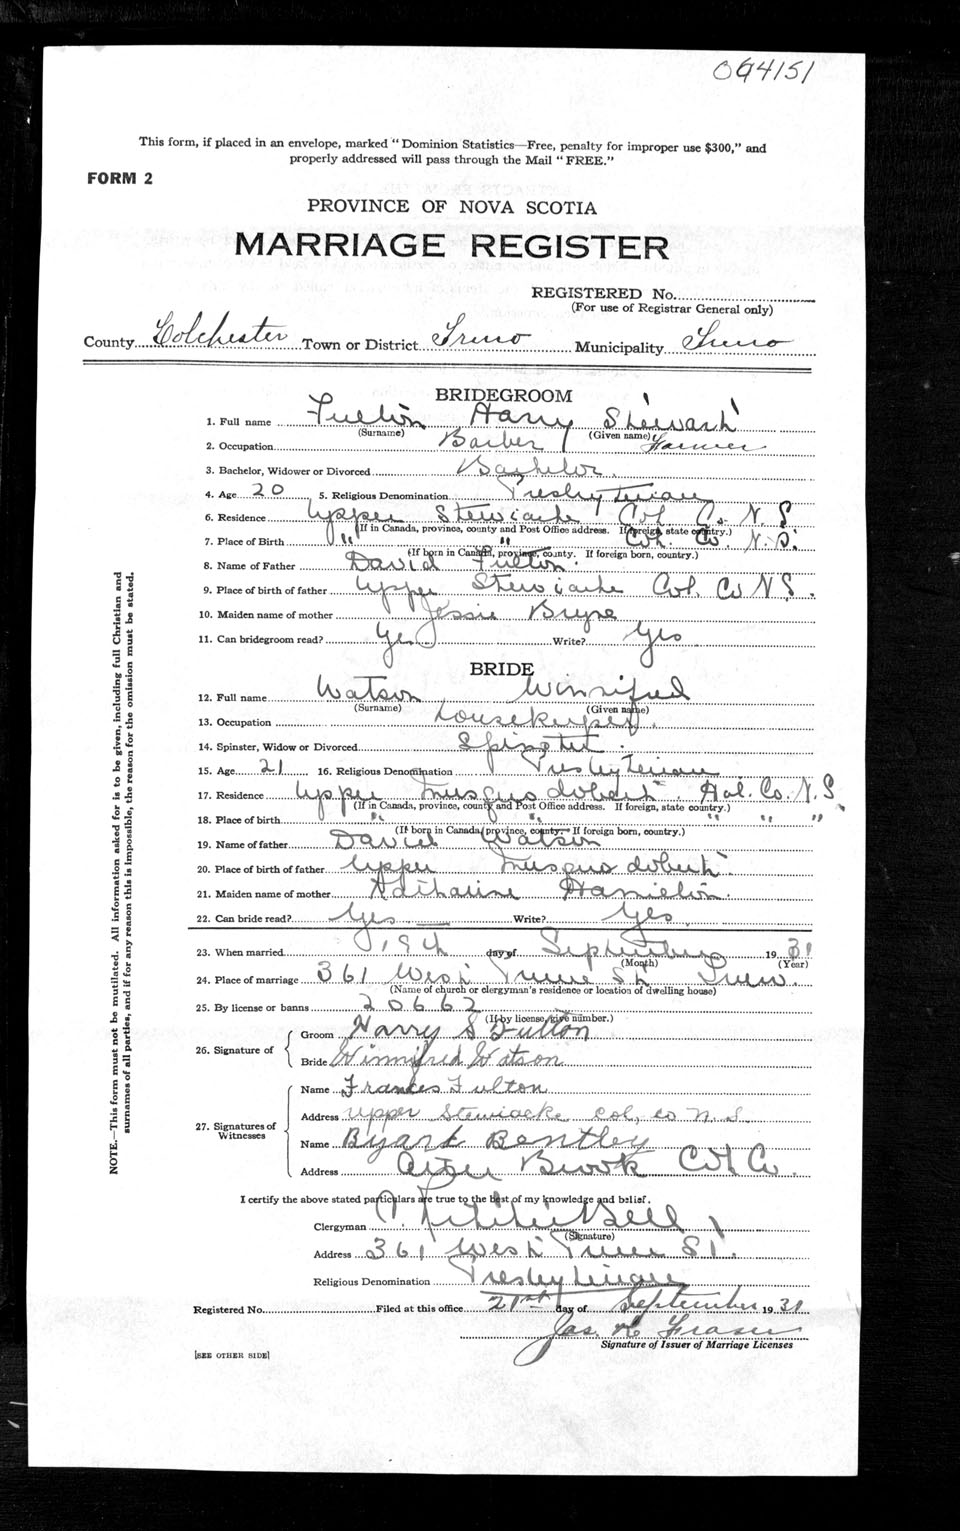 064151
This form, if placed in an envelope, marked "Dominion Statistics—Free, penalty for improper use $300," and
properly addressed will pass through the Mail "FREE."
FORM 2
PROVINCE OF NOVA SCOTIA
MARRIAGE REGISTER
REGISTERED No.
(For use of Registrar General only)
County Colchester Town or District Truro Municipality Truro
BRIDEGROOM
1. Full name Fulton Harry Stewart
(Surname) (Given name)
2. Occupation Barber Farmer
3. Bachelor, Widower or Divorced Bachelor
4. Age 20 5. Religious Denomination Presbyterian
6. Residence Upper Stewiacke Col. Co. N.S
(If in Canada, province, county and Post Office address. If foreign, state country.)
7. Place of Birth " " Col. Co. N.S.
(If born in Canada, province, county. If foreign born, country.)
8. Name of Father David Fulton
9. Place of birth of father Upper Stewiacke Col. Co N.S.
10. Maiden name of mother Jessie
11. Can bridegroom read? Yes Write? Yes
BRIDE
12. Full name Watson Winnifred
(Surname) (Given name)
13. Occupation Housekeeper
14. Spinster, Widow or Divorced Spinster
15. Age 21 16. Religious Denomination Presbyterian
17. Residence Upper Musquodoboit Hal. Co. N.S.
(If in Canada, province, county and Post Office address. If foreign, state country.)
18. Place of birth " " " " "
(If born in Canada, province, county. If foreign born, country.)
19. Name of father David Watson
20. Place of birth of father Upper Musquodoboit
21. Maiden name of mother Hamilton
22. Can bride read? Yes Write? Yes
23. When married 19th day of September 1931
(Month) (Year)
24. Place of marriage 361 West Prince St. Truro
(Name of church or clergyman's residence or location of dwelling house)
25. By license or banns 20662
(If by license, give number.)
26. Signature of
Groom Harry S Fulton
Bride Winnifred Watson
27. Signatures of Witnesses
Name Frances Fulton
Address Upper Stewiacke Col, Co N.S.
Name Byard Bentley
Address Otter Brook Col Co.
I certify the above stated particulars are true to the best of my knowledge and belief.
Clergyman
(Signature)
Address 361 West Prince St.
Religious Denomination Presbyterian
Registered No. Filed at this office 21st day of September 1931
Jas. H Fraser
Signature of Issuer of Marriage Licenses
[SEE OTHER SIDE]
NOTE.—This form must not be mutilated. All information asked for is to be given, including full Christian and
surnames of all parties, and if for any reason this is impossible, the reason for the omission must be stated.